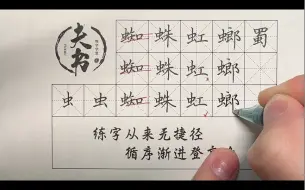 夫书
蜘蛛虹螂蜀
蜘蛛虹螂
虫虫蜘蛛虹螂
练字从来无捷径
循序渐进登